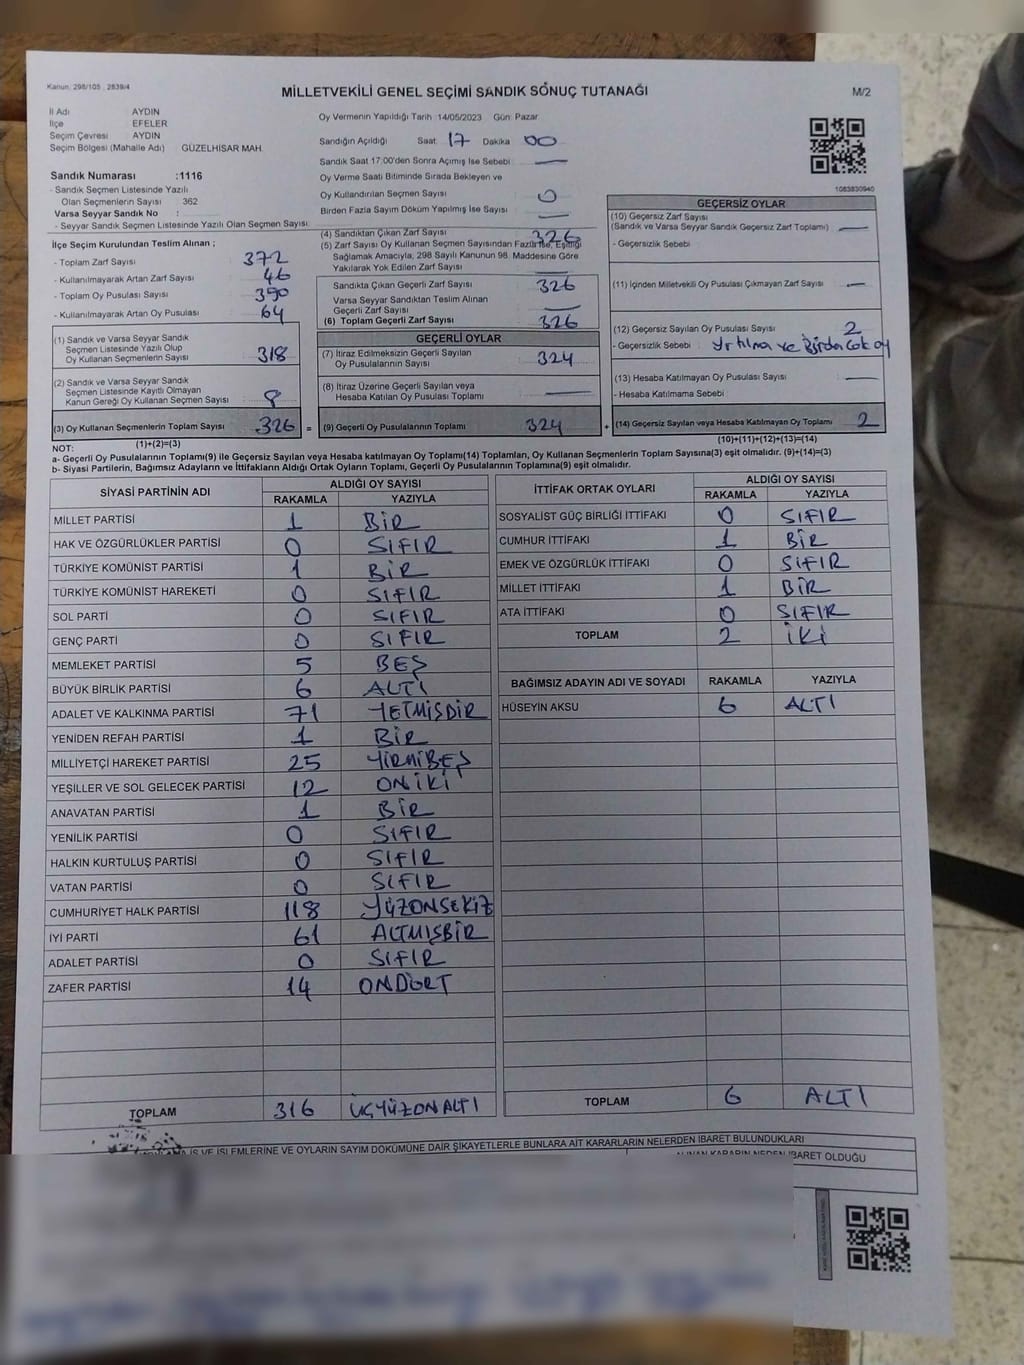 Kanun: 298/105 , 2839/4
MİLLETVEKİLİ GENEL SEÇİMİ SANDIK SONUÇ TUTANAĞI
M/2
İl Adı AYDIN
İlçe EFELER
Seçim Çevresi AYDIN
Seçim Bölgesi (Mahalle Adı) GÜZELHİSAR MAH.
Sandık Numarası :1116
- Sandık Seçmen Listesinde Yazılı
Olan Seçmenlerin Sayısı : 362
Varsa Seyyar Sandık No :
- Seyyar Sandık Seçmen Listesinde Yazılı Olan Seçmen Sayısı:
İlçe Seçim Kurulundan Teslim Alınan ;
- Toplam Zarf Sayısı 372
- Kullanılmayarak Artan Zarf Sayısı 46
- Toplam Oy Pusulası Sayısı 390
- Kullanılmayarak Artan Oy Pusulası 64
(1) Sandık ve Varsa Seyyar Sandık
Seçmen Listesinde Yazılı Olup
Oy Kullanan Seçmenlerin Sayısı 318
(2) Sandık ve Varsa Seyyar Sandık
Seçmen Listesinde Kayıtlı Olmayan
Kanun Gereği Oy Kullanan Seçmen Sayısı 8
(3) Oy Kullanan Seçmenlerin Toplam Sayısı 326 =
(1)+(2)=(3)
Oy Vermenin Yapıldığı Tarih :14/05/2023 Gün: Pazar
Sandığın Açıldığı Saat: 17 Dakika 00
Sandık Saat 17:00'den Sonra Açılmış İse Sebebi : —
Oy Verme Saati Bitiminde Sırada Bekleyen ve
Oy Kullandırılan Seçmen Sayısı : 0
Birden Fazla Sayım Döküm Yapılmış İse Sayısı : —
(4) Sandıktan Çıkan Zarf Sayısı 326
(5) Zarf Sayısı Oy Kullanan Seçmen Sayısından Fazla İse, Eşitliği
Sağlamak Amacıyla, 298 Sayılı Kanunun 98. Maddesine Göre
Yakılarak Yok Edilen Zarf Sayısı —
Sandıkta Çıkan Geçerli Zarf Sayısı 326
Varsa Seyyar Sandıktan Teslim Alınan
Geçerli Zarf Sayısı —
(6) Toplam Geçerli Zarf Sayısı 326
GEÇERLİ OYLAR
(7) İtiraz Edilmeksizin Geçerli Sayılan
Oy Pusulalarının Sayısı 324
(8) İtiraz Üzerine Geçerli Sayılan veya
Hesaba Katılan Oy Pusulası Toplamı —
(9) Geçerli Oy Pusulalarının Toplamı 324 +
1083830940
GEÇERSİZ OYLAR
(10) Geçersiz Zarf Sayısı
(Sandık ve Varsa Seyyar Sandık Geçersiz Zarf Toplamı) —
- Geçersizlik Sebebi :
(11) İçinden Milletvekili Oy Pusulası Çıkmayan Zarf Sayısı : —
(12) Geçersiz Sayılan Oy Pusulası Sayısı : 2
- Geçersizlik Sebebi : Yırtılma ve Birden Çok oy
(13) Hesaba Katılmayan Oy Pusulası Sayısı : —
- Hesaba Katılmama Sebebi :
(14) Geçersiz Sayılan veya Hesaba Katılmayan Oy Toplamı 2
(10)+(11)+(12)+(13)=(14)
NOT:
a- Geçerli Oy Pusulalarının Toplamı(9) ile Geçersiz Sayılan veya Hesaba katılmayan Oy Toplamı(14) Toplamları, Oy Kullanan Seçmenlerin Toplam Sayısına(3) eşit olmalıdır. (9)+(14)=(3)
b- Siyasi Partilerin, Bağımsız Adayların ve İttifakların Aldığı Ortak Oyların Toplamı, Geçerli Oy Pusulalarının Toplamına(9) eşit olmalıdır.
SİYASİ PARTİNİN ADI ALDIĞI OY SAYISI
RAKAMLA YAZIYLA
MİLLET PARTİSİ 1 BİR
HAK VE ÖZGÜRLÜKLER PARTİSİ 0 SIFIR
TÜRKİYE KOMÜNİST PARTİSİ 1 BİR
TÜRKİYE KOMÜNİST HAREKETİ 0 SIFIR
SOL PARTİ 0 SIFIR
GENÇ PARTİ 0 SIFIR
MEMLEKET PARTİSİ 5 BEŞ
BÜYÜK BİRLİK PARTİSİ 6 ALTI
ADALET VE KALKINMA PARTİSİ 71 YETMİŞBİR
YENİDEN REFAH PARTİSİ 1 BİR
MİLLİYETÇİ HAREKET PARTİSİ 25 YİRMİBEŞ
YEŞİLLER VE SOL GELECEK PARTİSİ 12 ONİKİ
ANAVATAN PARTİSİ 1 BİR
YENİLİK PARTİSİ 0 SIFIR
HALKIN KURTULUŞ PARTİSİ 0 SIFIR
VATAN PARTİSİ 0 SIFIR
CUMHURİYET HALK PARTİSİ 118 YÜZONSEKİZ
İYİ PARTİ 61 ALTMIŞBİR
ADALET PARTİSİ 0 SIFIR
ZAFER PARTİSİ 14 ONDÖRT
TOPLAM 316 ÜÇYÜZONALTI
İTTİFAK ORTAK OYLARI ALDIĞI OY SAYISI
RAKAMLA YAZIYLA
SOSYALİST GÜÇ BİRLİĞİ İTTİFAKI 0 SIFIR
CUMHUR İTTİFAKI 1 BİR
EMEK VE ÖZGÜRLÜK İTTİFAKI 0 SIFIR
MİLLET İTTİFAKI 1 BİR
ATA İTTİFAKI 0 SIFIR
TOPLAM 2 İKİ
BAĞIMSIZ ADAYIN ADI VE SOYADI RAKAMLA YAZIYLA
HÜSEYİN AKSU 6 ALTI
TOPLAM 6 ALTI
İŞ VE İŞLEMLERİNE VE OYLARIN SAYIM DÖKÜMÜNE DAİR ŞİKAYETLERLE BUNLARA AİT KARARLARIN NELERDEN İBARET BULUNDUKLARI
ALINAN KARARIN NEDEN İBARET OLDUĞU